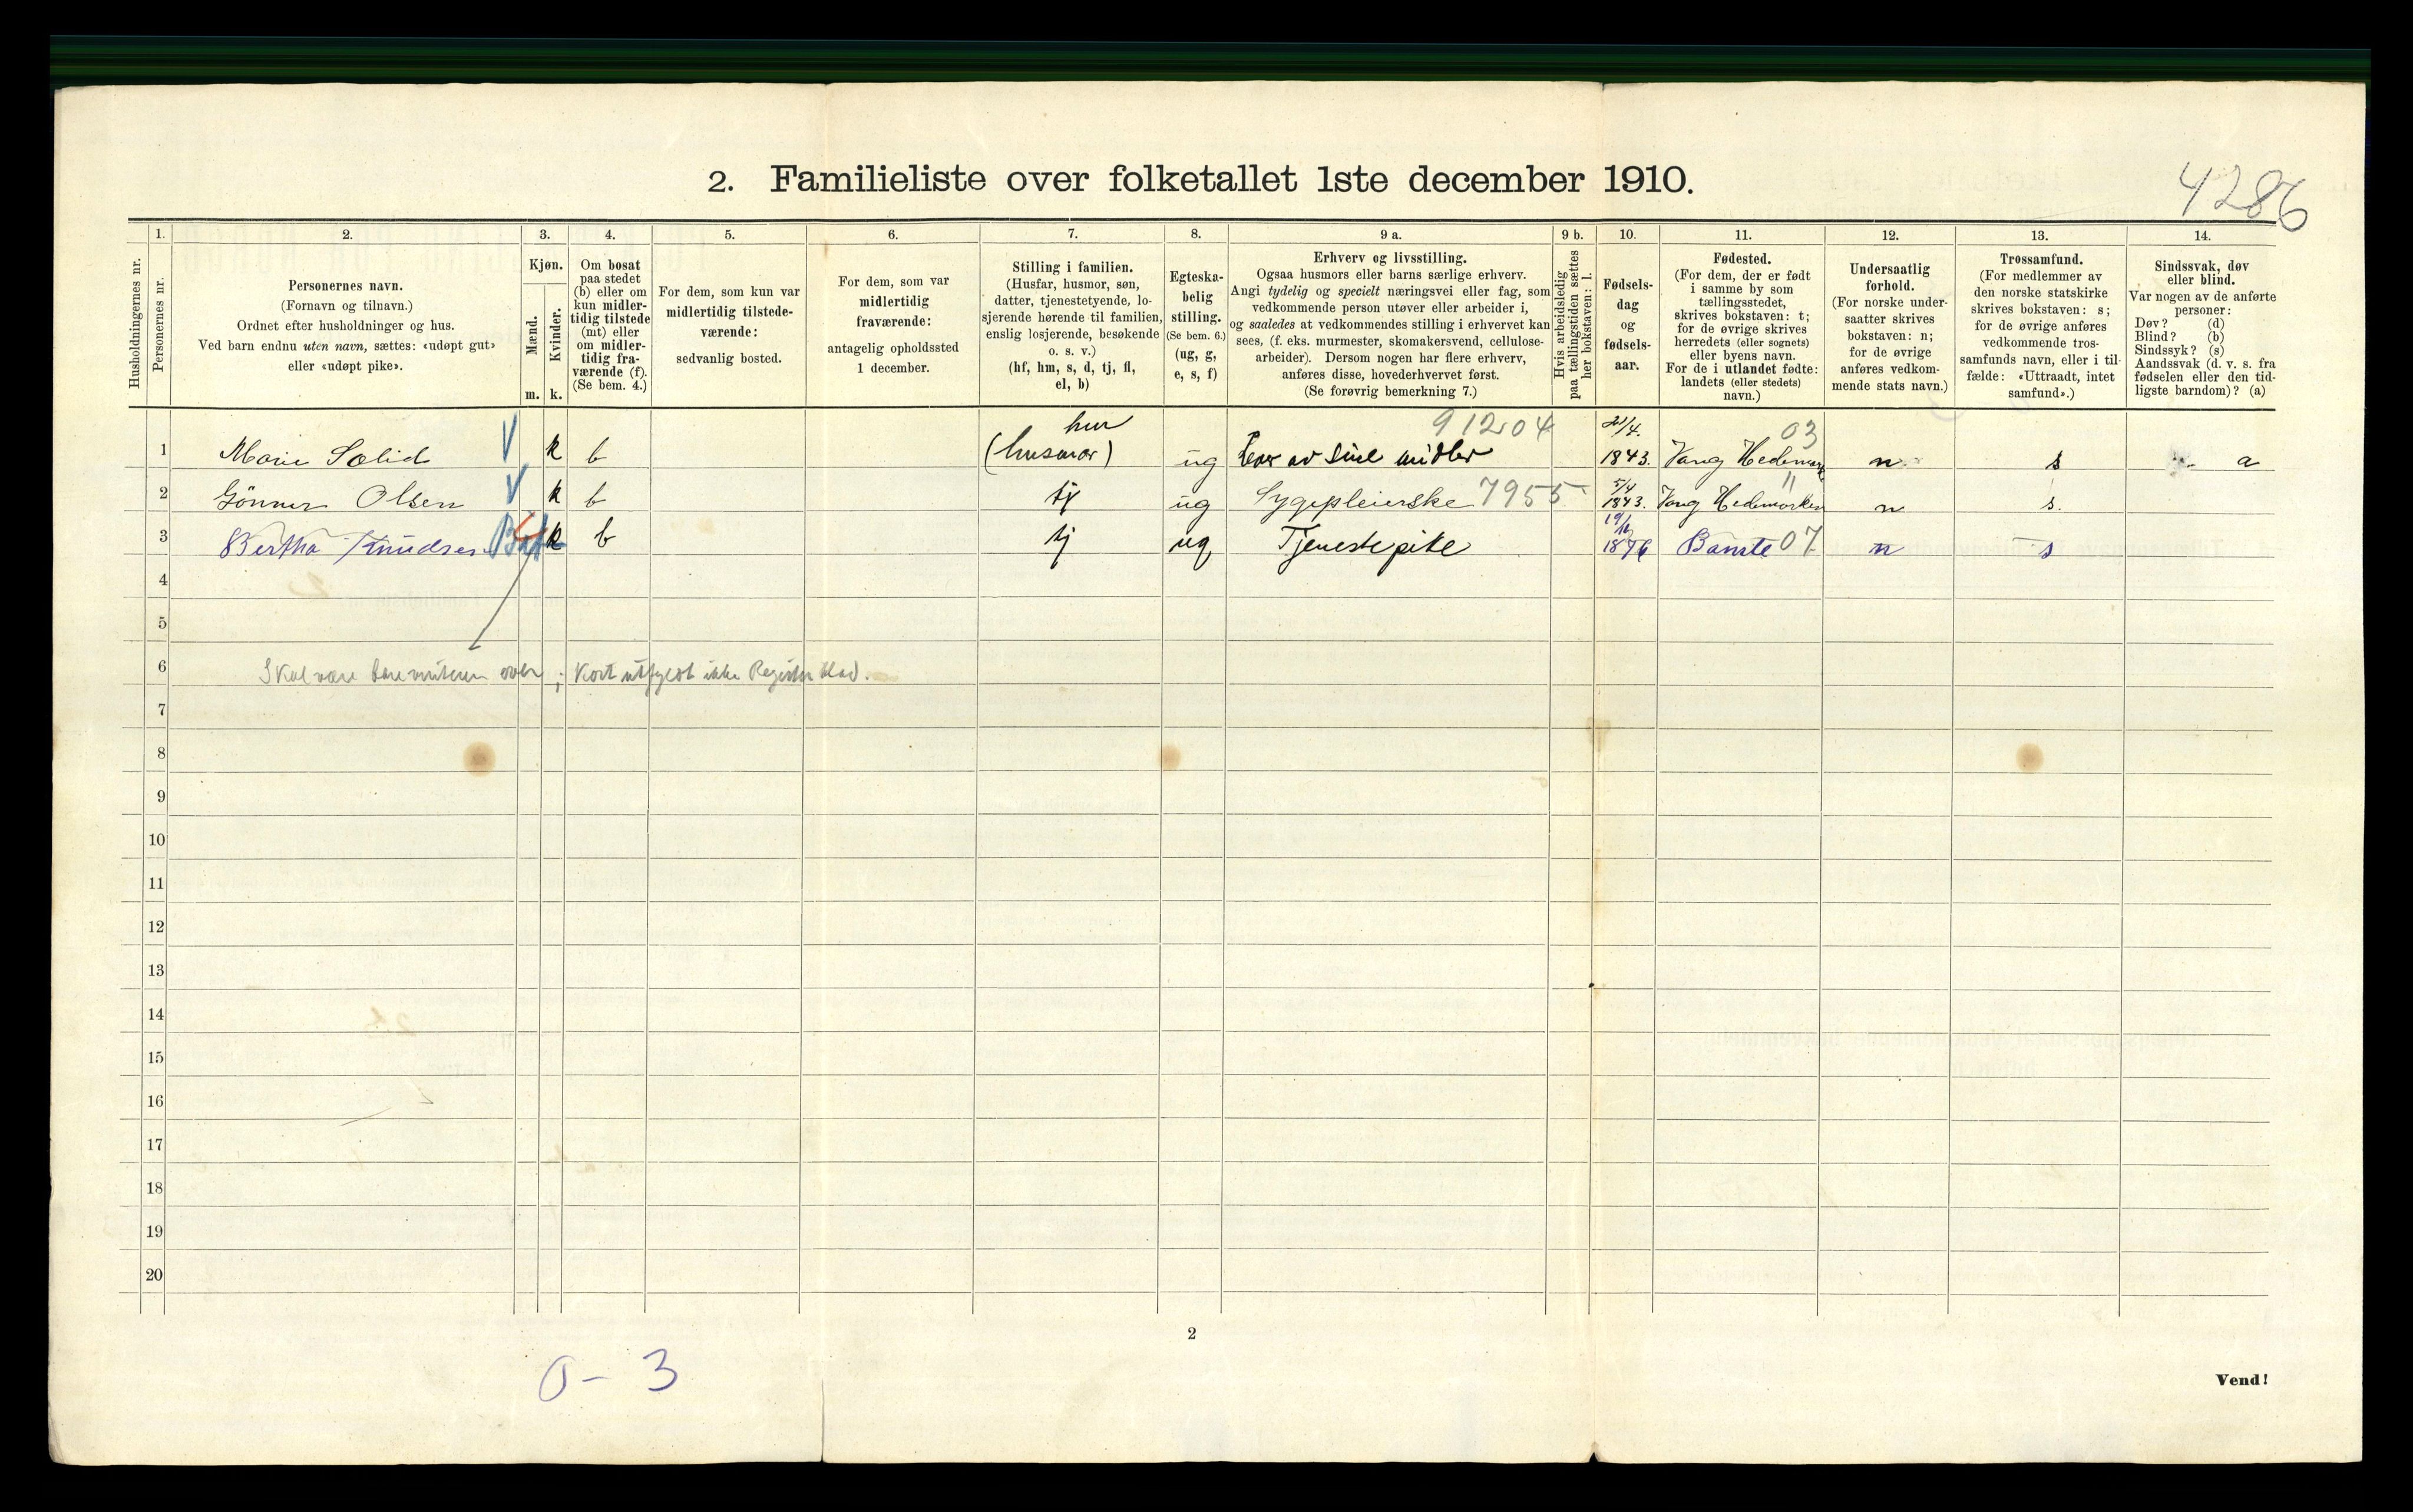 2. Familieliste over folketallet 1ste december 1910.
4286
Husholdningernes nr.
1.
Personernes nr.
2.
Personernes navn.
(Fornavn og tilnavn.)
Ordnet efter husholdninger og hus.
Ved barn endnu uten navn, sættes: «udøpt gut»
eller «udøpt pike».
3.
Kjøn.
Mænd.
Kvinder.
m. k.
4.
Om bosat
paa stedet
(b) eller om
kun midler-
tidig tilstede
(mt) eller
om midler-
tidig fra-
værende (f).
(Se bem. 4.)
5.
For dem, som kun var
midlertidig tilstede-
værende:
sedvanlig bosted.
6.
For dem, som var
midlertidig
fraværende:
antagelig opholdssted
1 december.
7.
Stilling i familien.
(Husfar, husmor, søn,
datter, tjenestetyende, lo-
sjerende hørende til familien,
enslig losjerende, besøkende
o. s. v.)
(hf, hm, s, d, tj, fl,
el, b)
8.
Egteska-
belig
stilling.
(Se bem. 6.)
(ug, g,
e, s, f)
9 a.
Erhverv og livsstilling.
Ogsaa husmors eller barns særlige erhverv.
Angi tydelig og specielt næringsvei eller fag, som
vedkommende person utøver eller arbeider i,
og saaledes at vedkommendes stilling i erhvervet kan
sees, (f. eks. murmester, skomakersvend, cellulose-
arbeider). Dersom nogen har flere erhverv,
anføres disse, hovederhvervet først.
(Se forøvrig bemerkning 7.)
9 b.
Hvis arbeidsledig
paa tællingstiden sættes
her bokstaven: l.
10.
Fødsels-
dag
og
fødsels-
aar.
11.
Fødested.
(For dem, der er født
i samme by som
tællingsstedet,
skrives bokstaven: t;
for de øvrige skrives
herredets (eller sognets)
eller byens navn.
For de i utlandet fødte:
landets (eller stedets)
navn.)
12.
Undersaatlig
forhold.
(For norske under-
saatter skrives
bokstaven: n;
for de øvrige
anføres vedkom-
mende stats navn.)
13.
Trossamfund.
(For medlemmer av
den norske statskirke
skrives bokstaven: s;
for de øvrige anføres
vedkommende tros-
samfunds navn, eller i til-
fælde: «Uttraadt, intet
samfund».)
14.
Sindssvak, døv
eller blind.
Var nogen av de anførte
personer:
Døv? (d)
Blind? (b)
Sindssyk? (s)
Aandssvak (d. v. s. fra
fødselen eller den tid-
ligste barndom)? (a)
hm 91204 03
1 Marie Sælid V k b (husmor) ug Lever av sine midler 21/4. 1843. Vang Hedemark n s a
2 Gönner Olsen V k b tj ug Sygepleierske 7955 5/4 1843. Vang Hedemarken " n s.
3 Bertha Knudsen k b tj ug Tjenestepike 1876 Bamle 07 n s
4
5
6 Skal være over; Kort utfyldt ikke Register blad.
7
8
9
10
11
12
13
14
15
16
17
18
19
20
2
0 - 3
Vend!